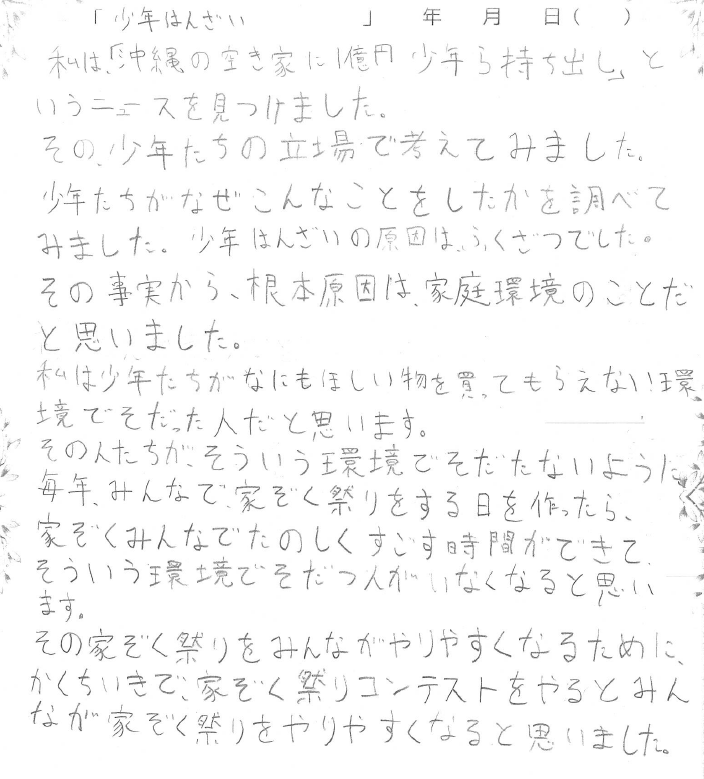 「少年はんざい 」 年 月 日( )
私は、「沖縄の空き家に1億円 少年ら持ち出し」と
いうニュースを見つけました。
その、少年たちの立場で考えてみました。
少年たちがなぜこんなことをしたかを調べて
みました。少年はんざいの原因は、ふくざつでした。
その事実から、根本原因は、家庭環境のことだ
と思いました。
私は少年たちがなにもほしい物を買ってもらえない環
境でそだった人だと思います。
その人たちが、そういう環境でそだたないように
毎年、みんなで、家ぞく祭りをする日を作ったら、
家ぞくみんなでたのしくすごす時間ができて、
そういう環境でそだつ人がいなくなると思い
ます。
その家ぞく祭りをみんながやりやすくなるために、
かくちいきで、家ぞく祭りコンテストをやるとみん
なが家ぞく祭りをやりやすくなると思いました。